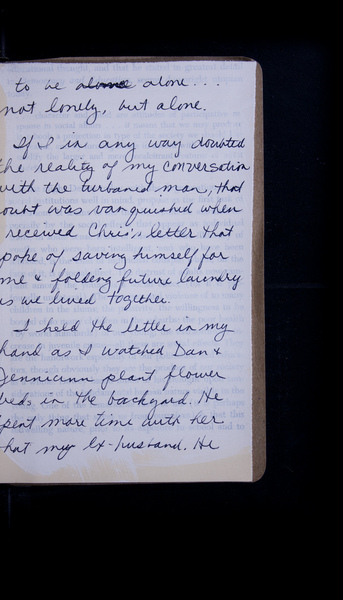 to be alone alone...
not lonely, but alone.
If I in any way doubted
the reality of my conversation
with the turbaned man, that
doubt was vanquished when
I received Chris's letter that
spoke of saving himself for
me & folding future laundry
as we lived together.
I held the letter in my
hand as I watched Dan &
Jenniann plant flower
beds in the backyard. He
spent more time with her
than my ex-husband. He